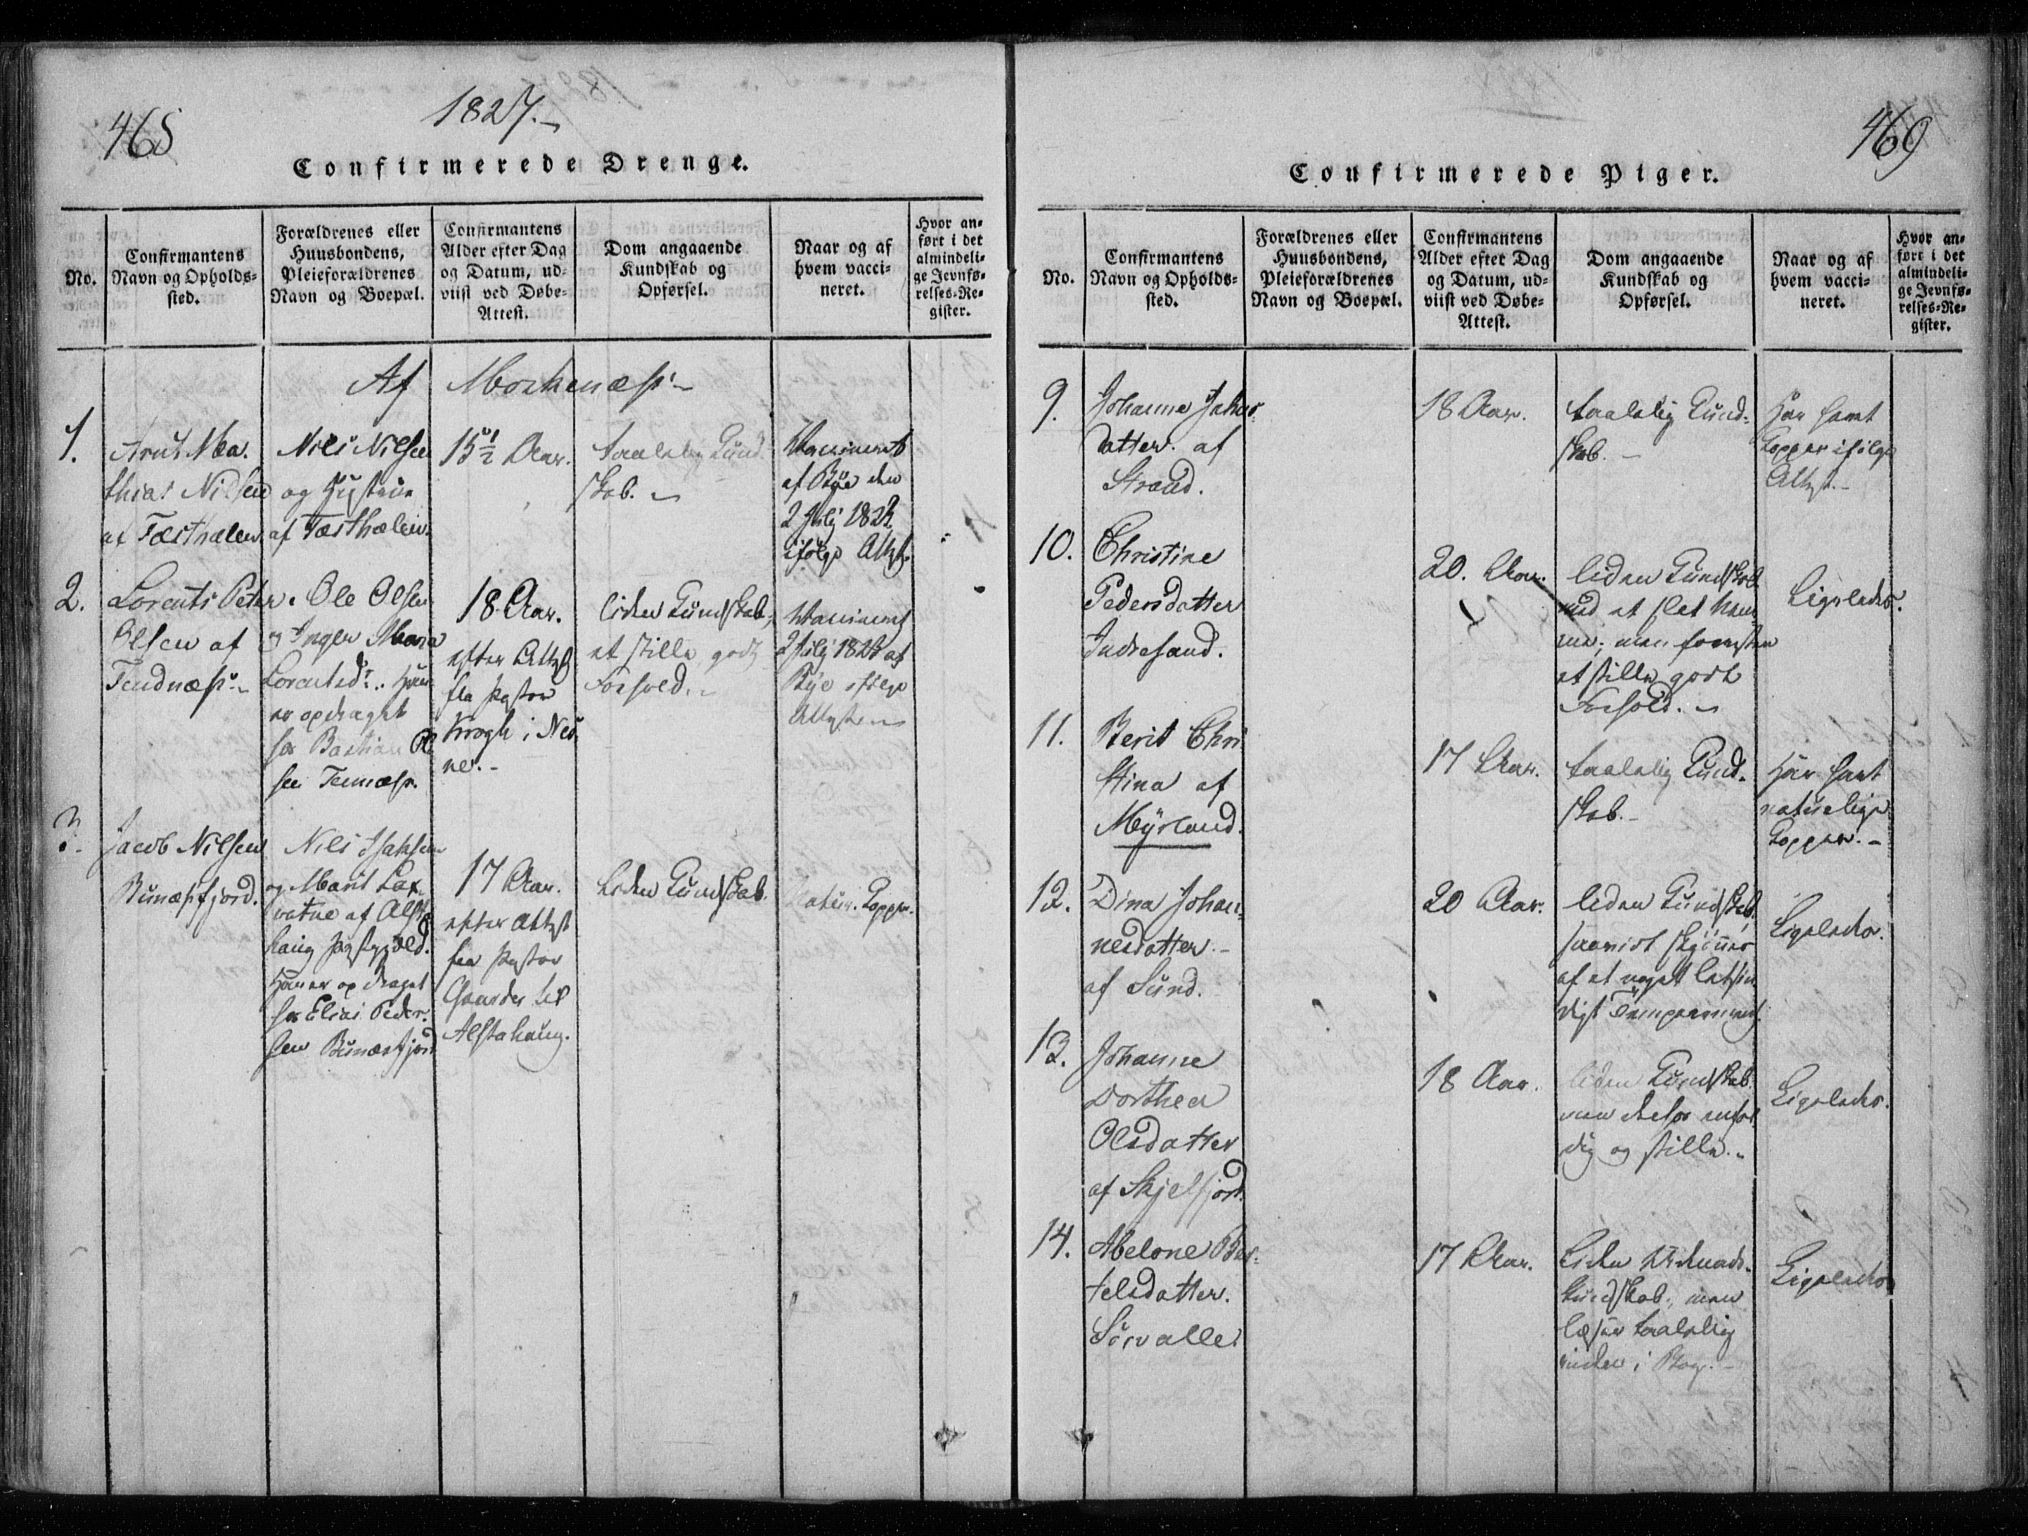 465
1827.-
Confirmerede Drenge.
No.
Confirmantens
Navn og Opholds-
sted.
Forældrenes eller
Huusbondens,
Pleieforældrenes
Navn og Boepæl.
Confirmantens
Alder efter Dag
og Datum, ud-
viist ved Døbe-
Attest.
Dom angaaende
Kundskab og
Opførsel.
Naar og af
hvem vacci-
neret.
Hvor an-
ført i det
almindeli-
ge Jevnfø-
relses-Re-
gister.
Af Moskenæs.-
1.
Arnt Ma-
thias Nilsen
af Tæsthælen
Nils Nilsen
og Justine
af Tæsthælen.
15 1/2 Aar.
taalelig Kund-
skab.-
Vaccineret
af Bye den
2 Julij 182
ifølge Attest.
2.
Lorents Peter
Olsen af
Tendnæs.-
Ole Olsen
og Inger Maria
Lorentsd.. Han
er opdraget
hos Bastian Ol
sen Tennæs.
18. Aar.
efter Attest
fra Pastor
Krogh i Nes
ne.-
liden Kundskab,
et stille godt
Forhold.-
Vaccineret
2 Julij 182 af
Bye ifølge
Attest.-
3.
Jacob Nilsen
Bunæsfjord.
Nils Isaksen
og Marit Lax-
vatne af Alsta
haug Præstegjæld.
Han er opdraget
hos Elias Peder-
sen Bunæsfjord
17 Aar.
efter Attest
fra Pastor
til
Alstahaug.
Liden Kundskab.
Natur. Kopper.
469
Confirmerede Piger.
No.
Confirmantens
Navn og Opholds-
sted.
Forældrenes eller
Huusbondens,
Pleieforældrenes
Navn og Boepæl.
Confirmantens
Alder efter Dag
og Datum, ud-
viist ved Døbe-
Attest.
Dom angaaende
Kundskab og
Opførsel.
Naar og af
hvem vacci-
neret.
Hvor an-
ført i det
almindeli-
ge Jevnfø-
relses-Re-
gister.
9.
Johanne Johns-
datter. af
Strand.
18 Aar.
taalelig Kund-
skab.-
Har havt
Kopper ifølge
Attest.-
10.
Christine
Pedersdatter
Indresand.
20. Aar.
liden Kundskab
med et slet Nem-
me; men forresten
et stille godt
Forhold.-
Ligeledes.
11.
Berit Chri
stina af
Myrland.
17 Aar.
taalelig Kund-
skab.-
Har havt
naturlige
Kopper.-
12.
Dina Johan-
nesdatter.-
af Sund.
20 Aar.
liden Kundskab,
af et noget letsin
digt Temperament.
Ligeledes.
13.
Johanne
Dorthea
Olsdatter
af Skjelfjord.
18 Aar.
liden Kundskab.
men derfor
og stille.-
Ligeledes.
14.
Abelone Bar-
telsdatter.
Sørvalle
17 Aar.
Liden Videnads-
kundskab, men
læser taalelig
inden i Bog.-
Ligeledes